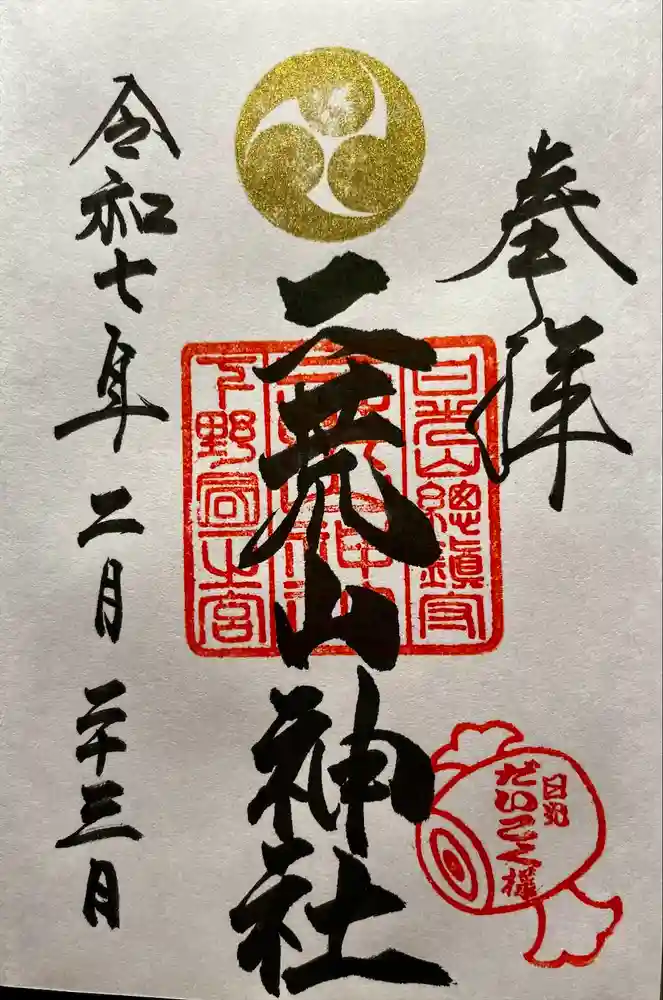 奉拝
日光山總鎮守
二荒山神社
下野國一之宮
日光
だいこく様
令和七年二月二十三日